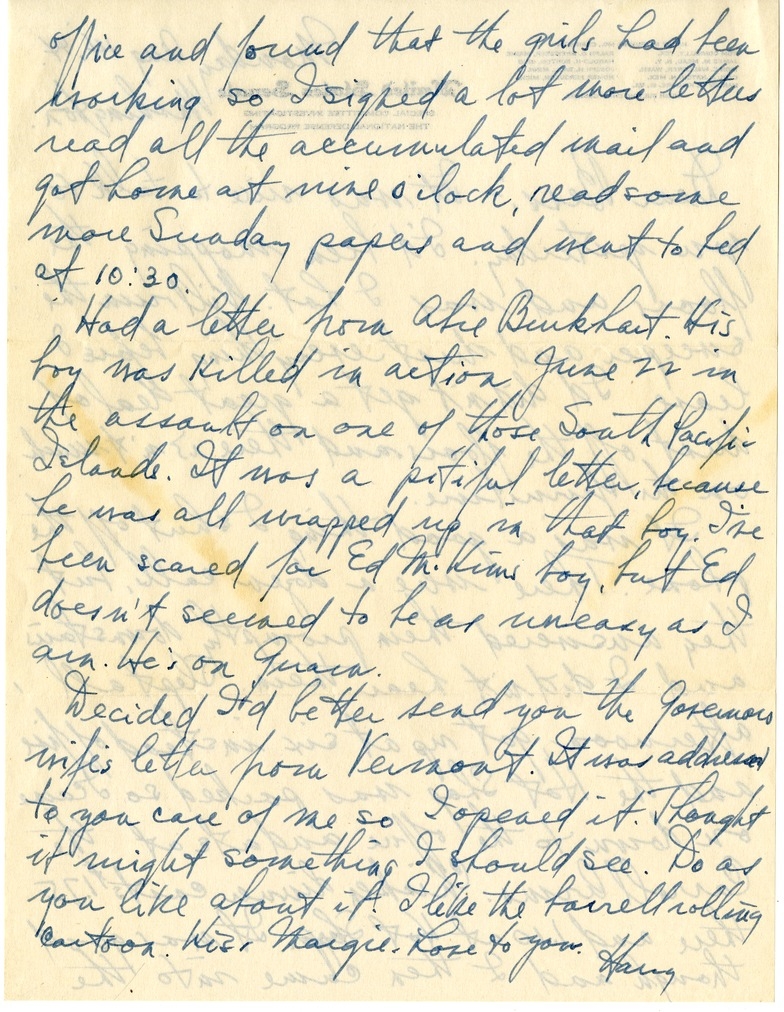 office and found that the girls had been
working so I signed a lot more letters
read all the accumulated mail and
got home at nine o'clock, read some
more Sunday papers and went to bed
at 10:30.
Had a letter from Abie Burkhart. His
boy was killed in action June 22 in
the assault on one of those South Pacific
Islands. It was a pitiful letter, because
he was all wrapped up in that boy. I've
been scared for Ed McKims boy, but Ed
doesn't seemed to be as uneasy as I
am. He's on Guam.
Decided I'd better send you the Governors
wife's letter from Vermont. It was addressed
to you care of me so I opened it. Thought
it might something I should see. Do as
you like about it. I like the barrell rolling
cartoon. Kiss Margie. Love to you.
Harry